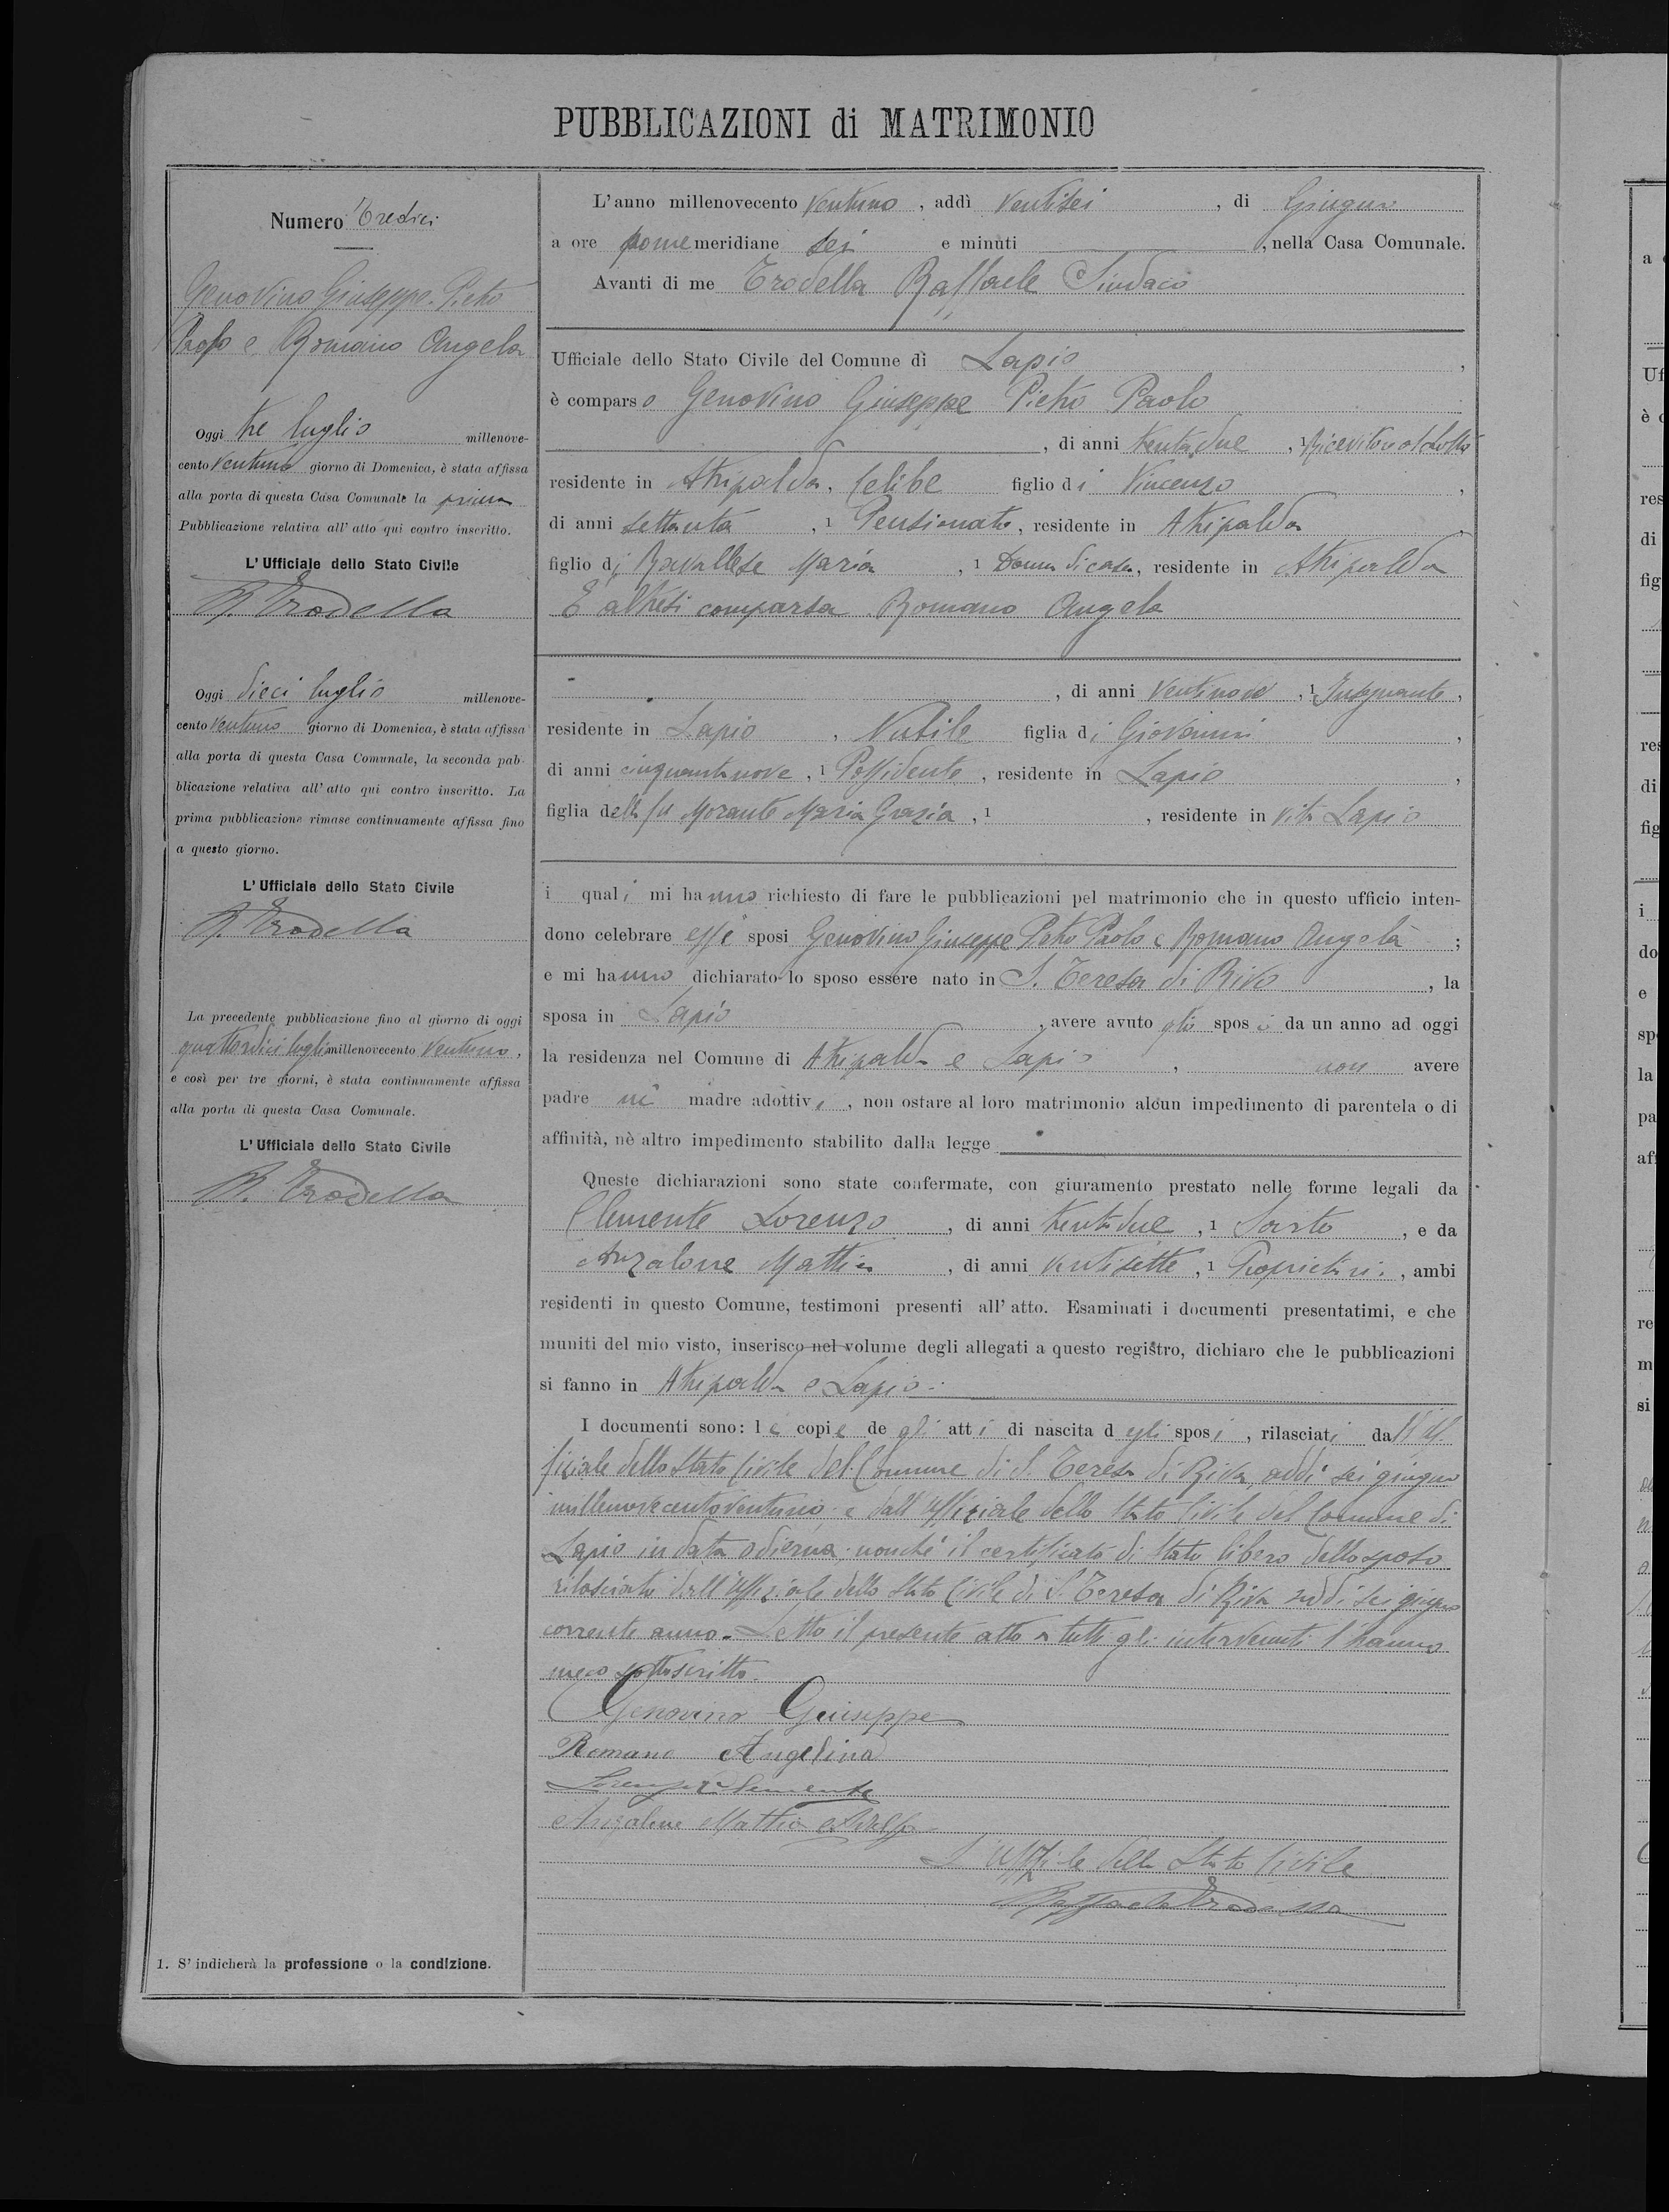 PUBBLICAZIONI di MATRIMONIO
Numero Tredici
Genovino Giuseppe Pietro
Paolo e Romano Angela
Oggi tre luglio millenove-
cento ventuno giorno di Domenica, è stata affissa
alla porta di questa Casa Comunale la prima
Pubblicazione relativa all' atto qui contro inscritto.
L' Ufficiale dello Stato Civile
R. Trodella
Oggi dieci luglio millenove-
cento ventuno giorno di Domenica, è stata affissa
alla porta di questa Casa Comunale, la seconda pub-
blicazione relativa all' atto qui contro inscritto. La
prima pubblicazione rimase continuamente affissa fino
a questo giorno.
L' Ufficiale dello Stato Civile
R. Trodella
La precedente pubblicazione fino al giorno di oggi
quattordici luglio millenovecento ventuno,
e così per tre giorni, è stata continuamente affissa
alla porta di questa Casa Comunale.
L' Ufficiale dello Stato Civile
R. Trodella
1. S' indicherà la professione o la condizione.
L'anno millenovecento ventuno, addì ventisei, di Giugno
a ore pomemeridiane sei e minuti , nella Casa Comunale.
Avanti di me Trodella Raffaele Sindaco
Ufficiale dello Stato Civile del Comune di Lapio,
è comparso Genovino Giuseppe Pietro Paolo
, di anni trentadue, 1 Ricevitore
residente in Atripalda, Celibe figlio di Vincenzo,
di anni settanta, 1 Pensionato, residente in Atripalda
figlio di Ravallese Maria, 1 Donna di casa, residente in Atripalda
E altresì comparsa Romano Angela
, di anni ventinove, 1 Insegnante,
residente in Lapio, Nubile figlia di Giovanni,
di anni cinquantanove, 1 Possidente, residente in Lapio,
figlia della fu Morante Maria Grazia, 1 , residente in vita Lapio
i quali mi hanno richiesto di fare le pubblicazioni pel matrimonio che in questo ufficio inten-
dono celebrare essi sposi Genovino Giuseppe Pietro Paolo e Romano Angela;
e mi hanno dichiarato lo sposo essere nato in S. Teresa di Riva, la
sposa in Lapio, avere avuto gli sposi da un anno ad oggi
la residenza nel Comune di Atripalda e Lapio, non avere
padre nè madre adottivi, non ostare al loro matrimonio alcun impedimento di parentela o di
affinità, nè altro impedimento stabilito dalla legge
Queste dichiarazioni sono state confermate, con giuramento prestato nelle forme legali da
Clemente Lorenzo, di anni trentadue, 1 Sarto, e da
Anzalone Mattia, di anni ventisette, 1 Proprietario, ambi
residenti in questo Comune, testimoni presenti all' atto. Esaminati i documenti presentatimi, e che
muniti del mio visto, inserisco nel volume degli allegati a questo registro, dichiaro che le pubblicazioni
si fanno in Atripalda e Lapio.
I documenti sono: le copie degli atti di nascita degli sposi, rilasciati dall'Uf-
ficiale dello Stato Civile del Comune di S. Teresa di Riva addì sei giugno
millenovecentoventuno, e dall'Uffiziale dello Stato Civile del Comune di
Lapio in data odierna; nonché il certificato di Stato libero dello sposo
rilasciato dall'Uffiziale dello Stato Civile di S. Teresa di Riva addì sei giugno
corrente anno. Letto il presente atto a tutti gli intervenuti l'hanno
meco sottoscritto.
Genovino Giuseppe
Romano Angelina
Lorenzo Clemente
Anzalone Mattia
L'Uffiziale dello Stato Civile
Raffaele Trodella